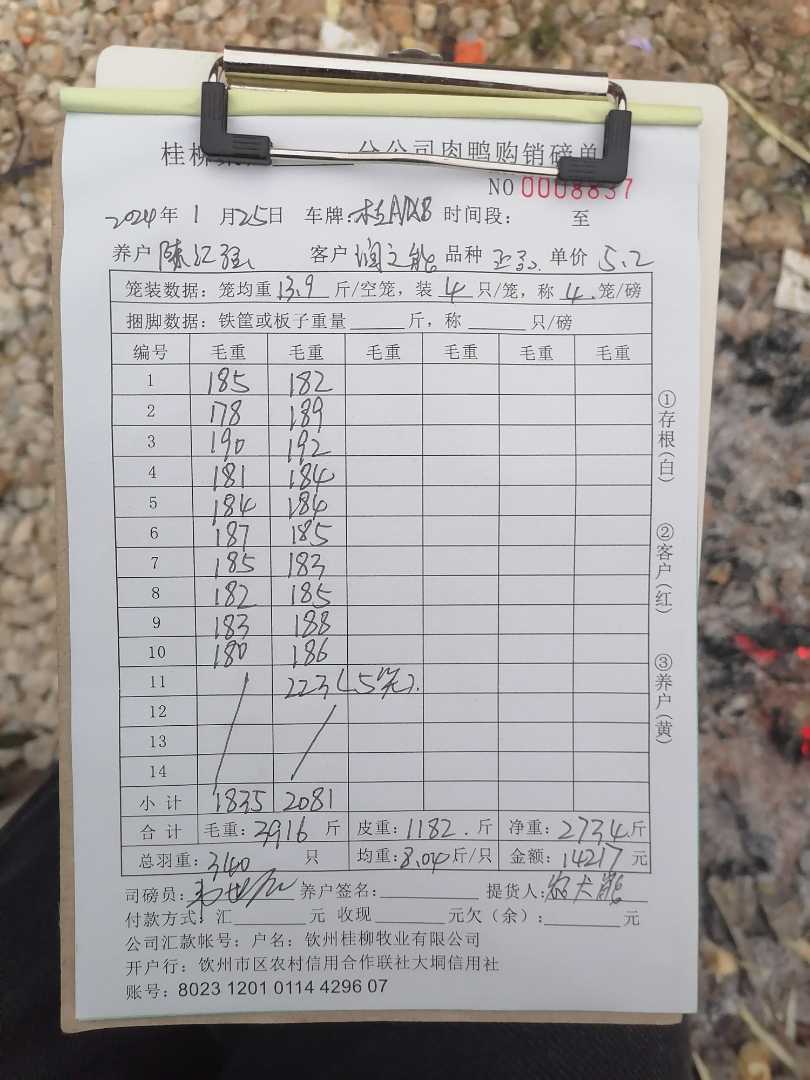 桂柳 分公司肉鸭购销磅单
NO 0008837
2024年 1 月25日 车牌: 时间段: 至
养户 陈 客户 品种 单价 5.2
笼装数据: 笼均重 13.9 斤/空笼, 装 4 只/笼, 称 4 笼/磅
捆脚数据: 铁筐或板子重量 斤, 称 只/磅
编号 毛重 毛重 毛重 毛重 毛重 毛重
1 185 182
2 178 189
3 190 192
4 181 184
5 184 184
6 187 185
7 185 183
8 182 185
9 183 188
10 180 186
11 223 (5笼).
12
13
14
小 计 1835 2081
合 计 毛重: 3916 斤 皮重: 1182. 斤 净重: 2734 斤
总羽重: 340 只 均重: 8.04 斤/只 金额: 14217 元
司磅员: 养户签名: 提货人:
付款方式: 汇 元 收现 元欠(余): 元
公司汇款帐号: 户名: 钦州桂柳牧业有限公司
开户行: 钦州市区农村信用合作联社大垌信用社
账号: 8023 1201 0114 4296 07
①存根(白) ②客户(红) ③养户(黄)